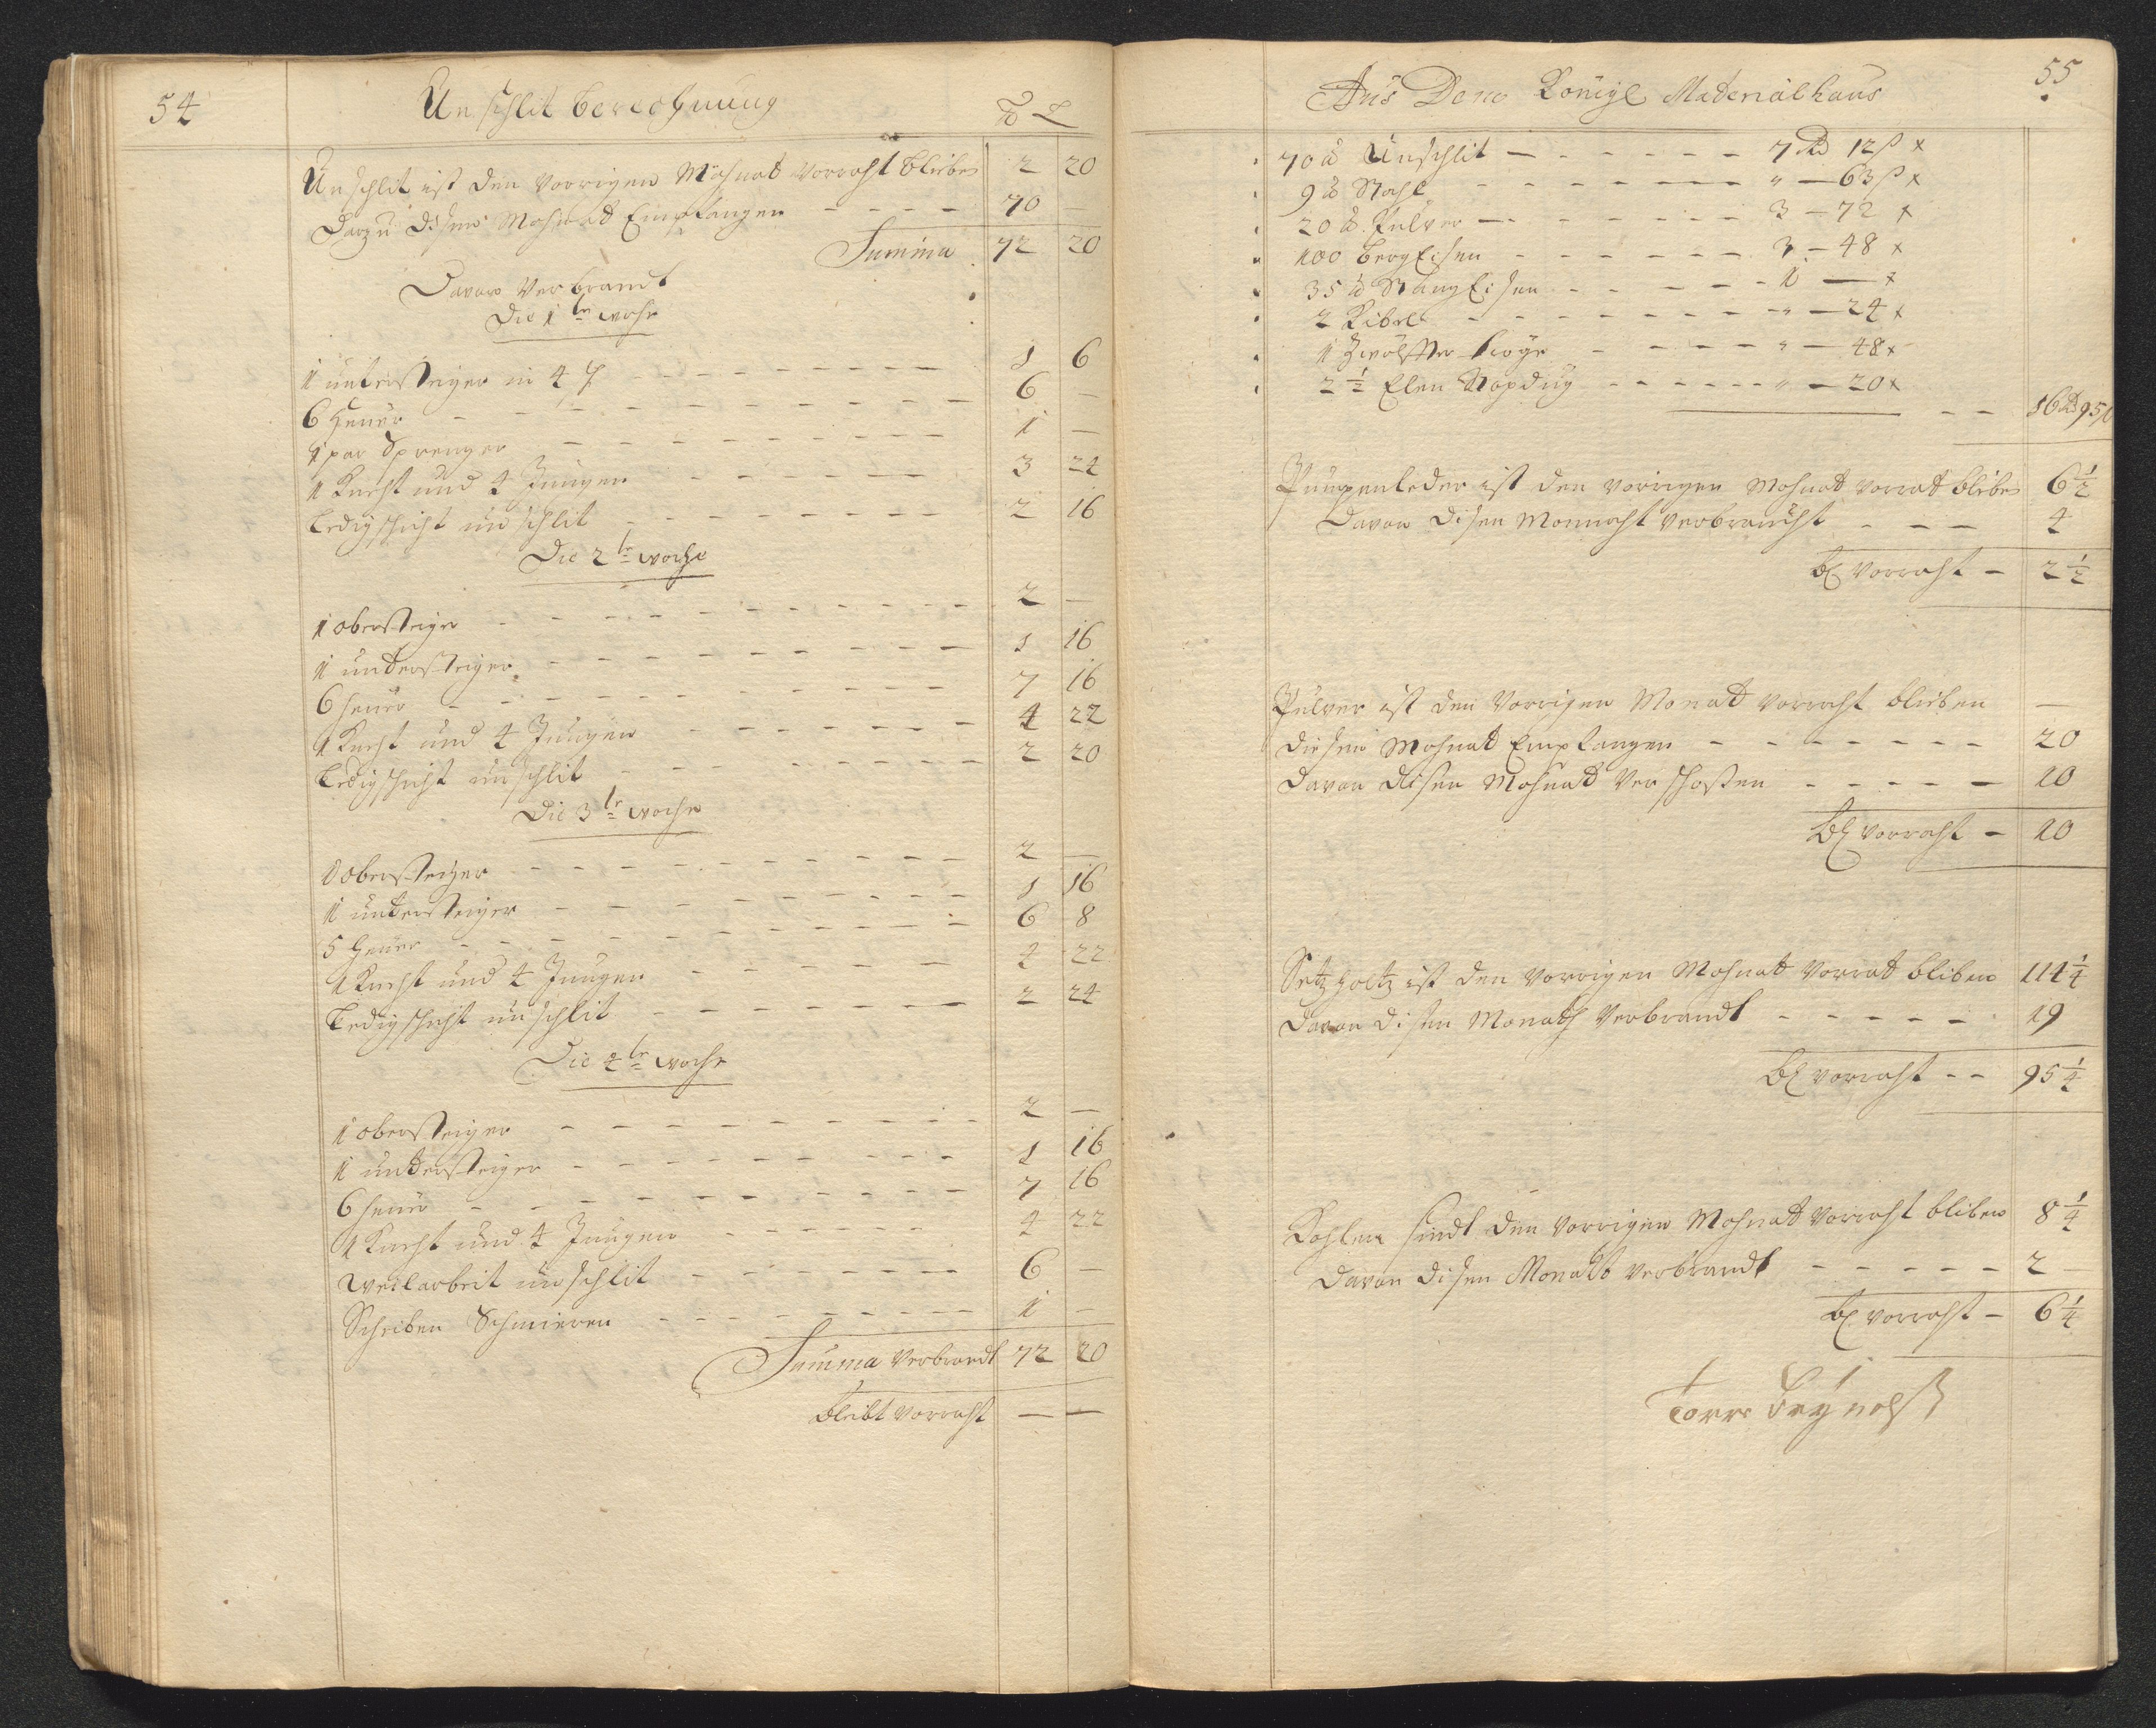 54
Unschlit berechnung
℔ L
Unschlit ist den vorrigen Mohnat Vorraht blieben 2 20
Darzu disen Mohnat Empfangen - - - - 70 —
Summa 72 20
Davon Verbrandt
Die 1te woche
1 untersteiger in 4 7 - - - - - - - - 1 6
6 Heuer - - - - - - - - - - 6 —
1 par Sprenger - - - - - - - - 1 —
1 Knecht und 4 Jungen - - - - - - 3 24
Ledigschicht unschlit - - - - - - - 2 16
Die 2te woche
1 obersteiger - - - - - - - - - - 2 —
1 understeiger - - - - - - - - - - 1 16
6 heuer - - - - - - - - - - 7 16
1 Knecht und 4 Jungen - - - - - - 4 22
Ledigschicht unschlit - - - - - - - - 2 20
Die 3te woche
1 obersteiger - - - - - - - - - - 2 —
1 understeiger - - - - - - - - - 1 16
5 heuer - - - - - - - - - - 6 8
1 Knecht und 4 Jungen - - - - - - 4 22
Ledigschicht unschlit - - - - - - - 2 24
Die 4te woche
1 obersteiger - - - - - - - - - - 2 —
1 understeiger - - - - - - - - - 1 16
6 heuer - - - - - - - - - - 7 16
1 Knecht und 4 Jungen - - - - - - 4 22
weilarbeit unschlit - - - - - - - - 6 —
Scheiben Schmieren - - - - - - - - 1 —
Summa Verbrandt 72 20
bleibt vorraht — —
55
Aus Dem Königl Materialhaus
70 ℔ Unschlit - - - - - - - 7 Rd 12 β x
9 ℔ Stahl - - - - - - - " — 63 β x
20 ℔ Pulver - - - - - - - 3 — 72 x
100 bergEisen - - - - - - 3 — 48 x
35 ℔ StangEisen - - - - - - 1 — x
2 Kibel - - - - - - - - " — 24 x
1 Zwölffter - - - - " — 48 x
2 1/2 Elen - - - - - - " — 20 x
- - 16 Rd 95 β
Pumpenleder ist den vorrigen Mohnat vorrat blieben 6 1/2
Davon disen Monnaht verbraucht - - - 4
bl vorraht - 2 1/2
Pulver ist den Vorrigen Monat vorraht blieben —
diesen Mohnat Empfangen - - - - - - - - 20
davon disen Mohnad Verschoßen - - - - - 10
bl vorraht - 10
Setzholtz ist den vorrigen Mohnat Vorrat bliben 114 1/4
davon disen Monath Verbrandt - - - - - 19
bl vorraht - - 95 1/4
Kohlen sindt den vorrigen Mohnat vorraht bliben 8 1/4
davon disen Monatt verbrandt - - - - - 2 —
bl vorraht - 6 1/4